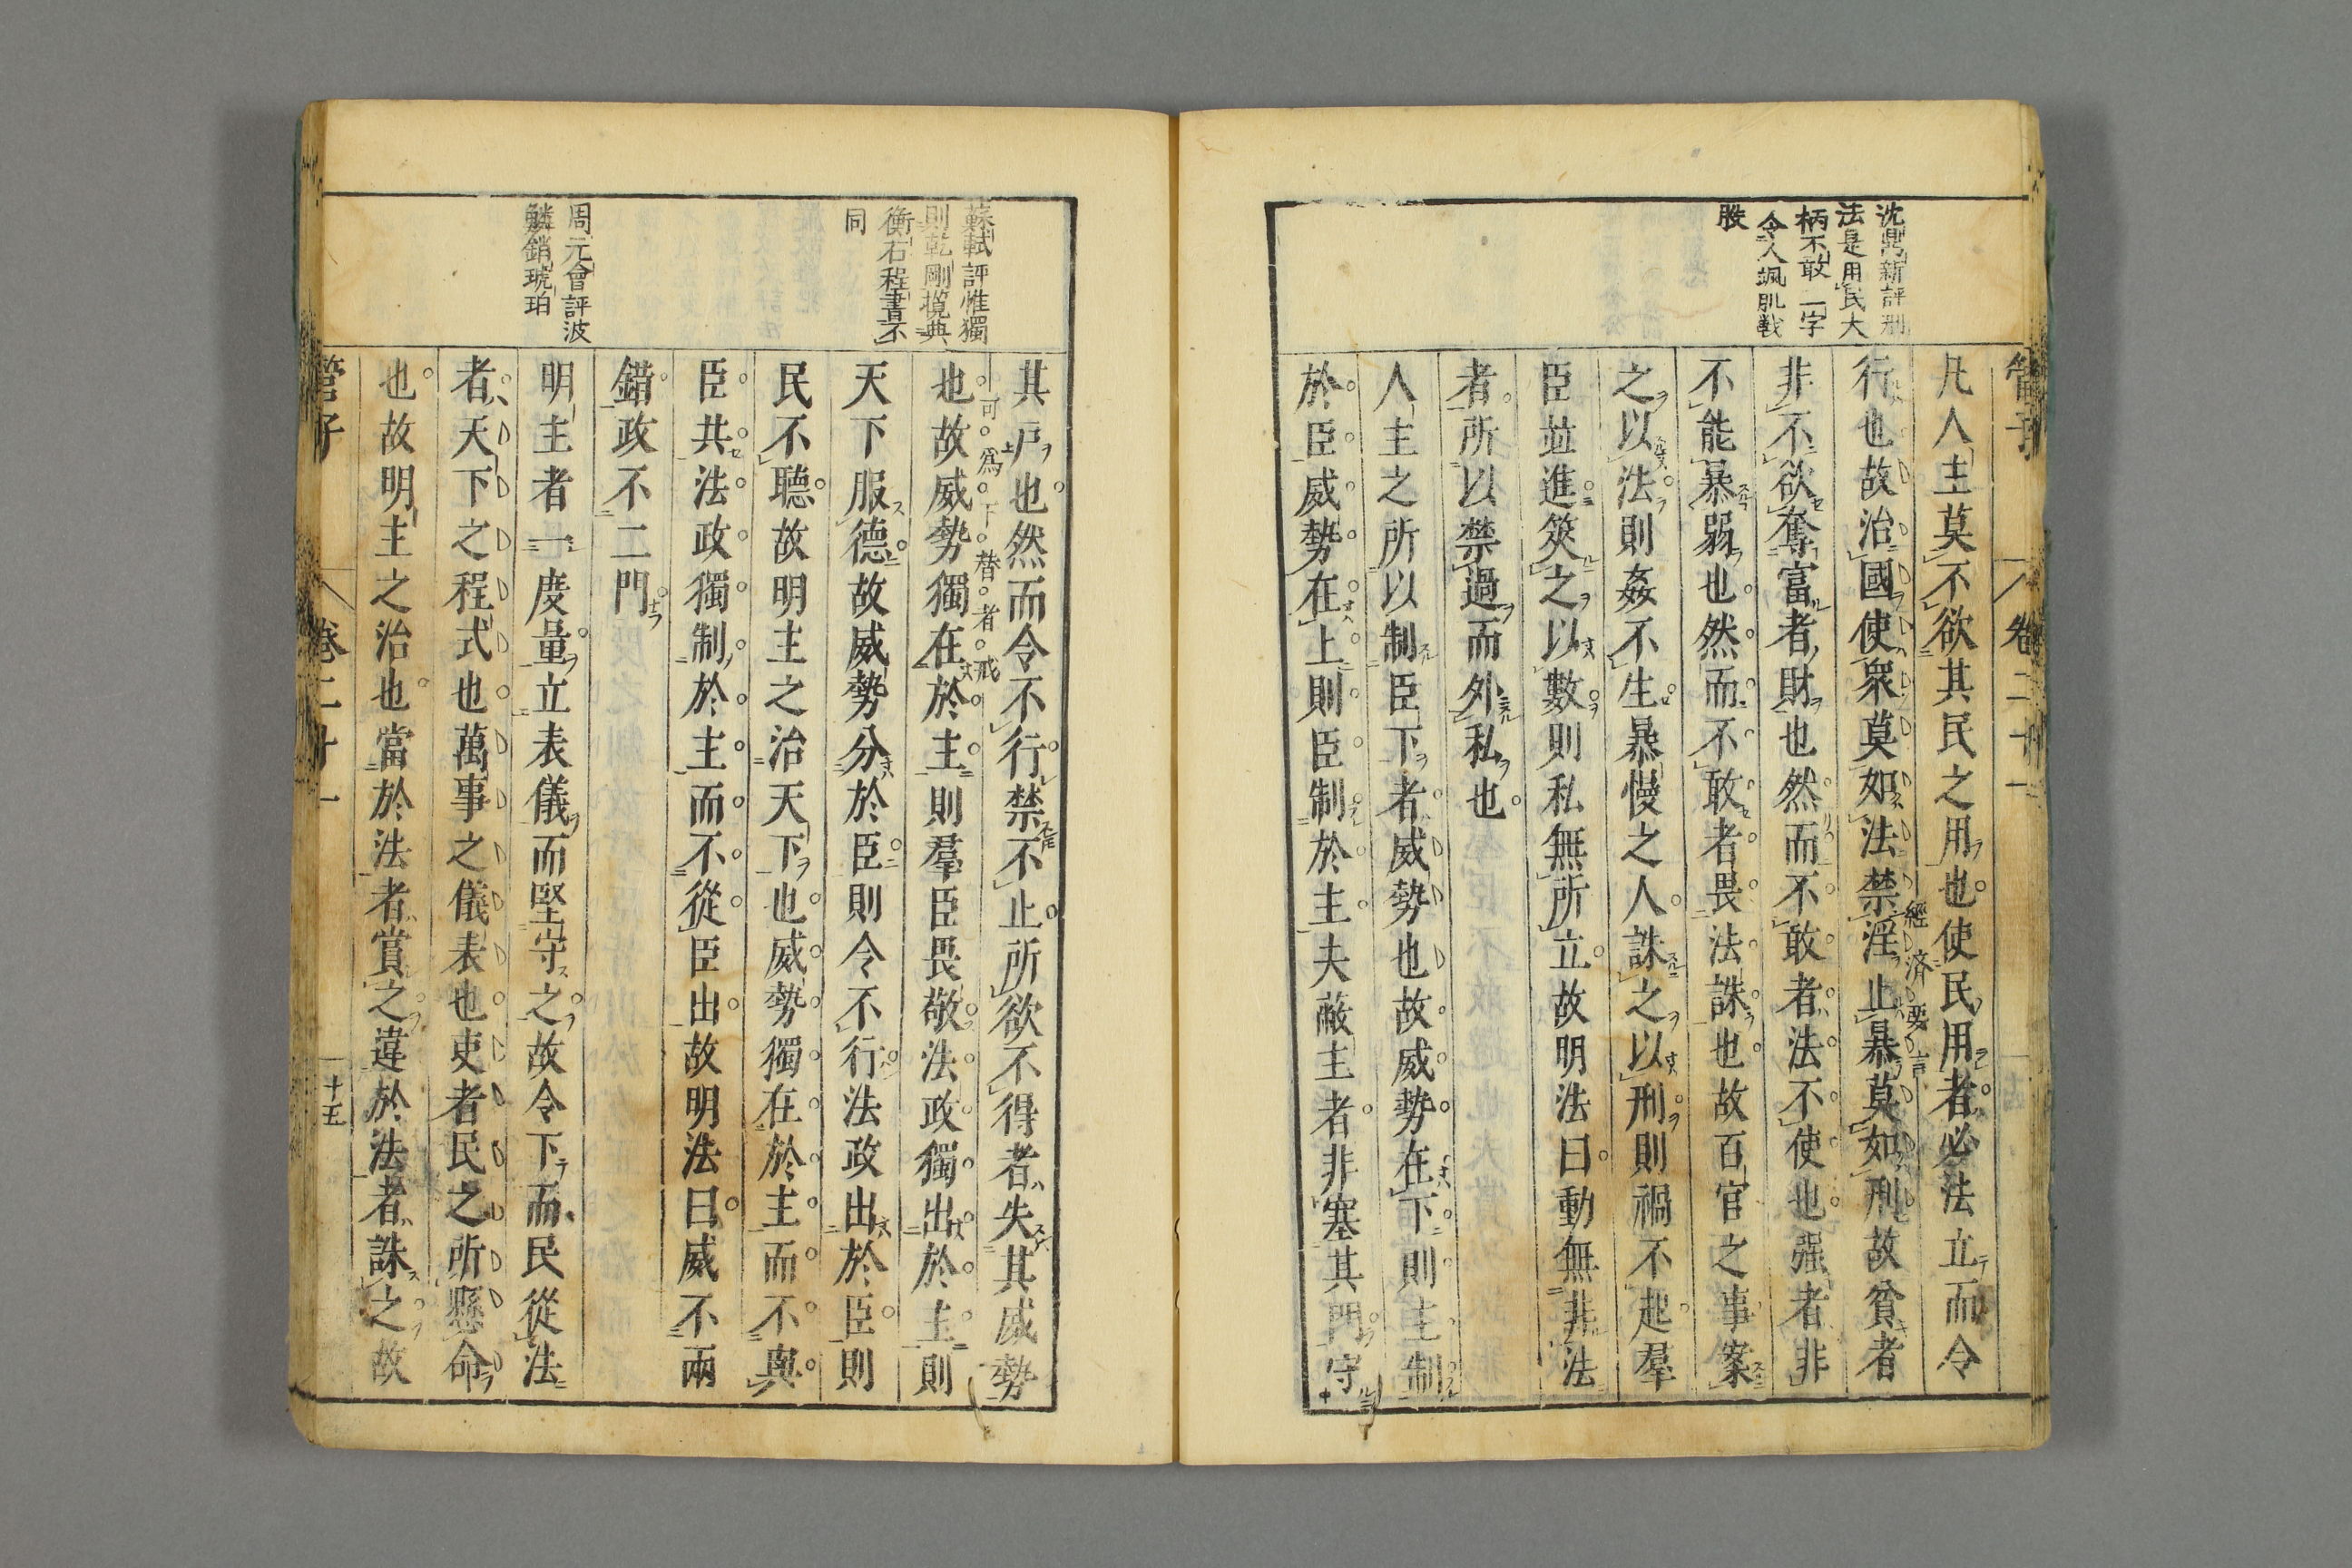 管子
卷二十一
沈鼎新評刑
法是用民大
柄不敢二字
令人颯肌戰
股
凡人主莫不欲其民之用也使民用者必法立而令
行也故治國使衆莫如法禁淫止暴莫如刑故貧者
經済要言
非不欲奪富者財也然而不敢者法不使也强者非
不能暴弱也然而不敢者畏法誅也故百官之事案
之以法則姦不生暴慢之人誅之以刑則禍不起羣
臣並進筴之以數則私無所立故明法曰動無非法
者所以禁過而外私也
人主之所以制臣下者威勢也故威勢在下則主制
於臣威勢在上則臣制於主夫蔽主者非塞其門守
蘇軾評惟獨
則乾剛攬典
衡石程書不
同
周元會評波
鱗銷琥珀
其戸也然而令不行禁不止所欲不得者失其威勢
可爲下替者戒
也故威勢獨在於主則羣臣畏敬法政獨出於主則
天下服德故威勢分於臣則令不行法政出於臣則
民不聽故明主之治天下也威勢獨在於主而不與
臣共法政獨制於主而不從臣出故明法曰威不兩
錯政不二門
明主者一度量立表儀而堅守之故令下而民從法
者天下之程式也萬事之儀表也吏者民之所懸命
也故明主之治也當於法者賞之違於法者誅之故
管子
卷二十一
十五